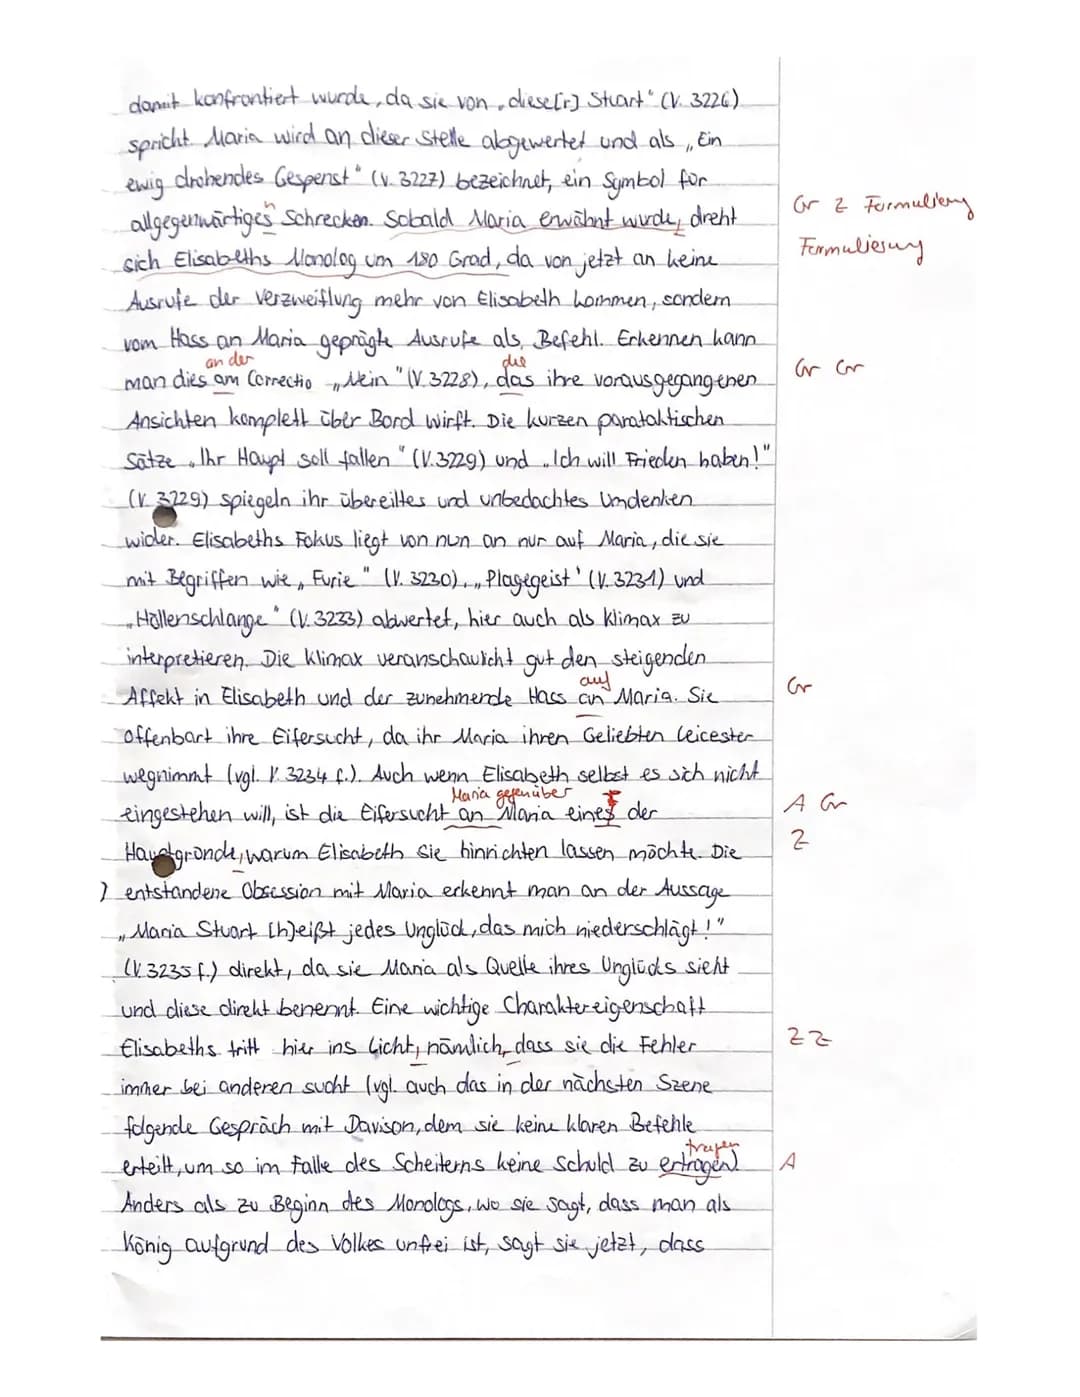 damit konfrontiert wurde, da sie von „diese[r] Stuart" (V. 3226)
spricht. Maria wird an dieser Stelle abgewertet und als „Ein
ewig drohendes Gespenst" (V. 3227) bezeichnet, ein Symbol für
n
allgegenwärtiges Schrecken. Sobald Maria erwähnt wurde, dreht
Gr Z Formulierung
sich Elisabeths Monolog um 180 Grad, da von jetzt an keine
Formulierung
Ausrufe der Verzweiflung mehr von Elisabeth kommen, sondern
vom Hass an Maria geprägte Ausrufe als Befehl. Erkennen kann
an der die
man dies am Correctio „Nein" (V. 3228), das ihre vorausgegangenen
Gr Gr
Ansichten komplett über Bord wirft. Die kurzen parataktischen
Sätze „Ihr Haupt soll fallen" (V. 3229) und „Ich will Frieden haben!"
(V. 3229) spiegeln ihr übereiltes und unbedachtes Umdenken
wider. Elisabeths Fokus liegt von nun an nur auf Maria, die sie
mit Begriffen wie „Furie" (V. 3230), „Plagegeist" (V. 3231) und
„Höllenschlange" (V. 3233) abwertet, hier auch als Klimax zu
interpretieren. Die Klimax veranschaulicht gut den steigenden
auf
Affekt in Elisabeth und der zunehmende Hass an Maria. Sie
Gr
offenbart ihre Eifersucht, da ihr Maria ihren Geliebten Leicester
wegnimmt (vgl. V. 3234 f.). Auch wenn Elisabeth selbst es sich nicht
Maria gegenüber
eingestehen will, ist die Eifersucht an Maria eines der
A Gr
Hauptgründe, warum Elisabeth sie hinrichten lassen möchte. Die
Z
entstandene Obsession mit Maria erkennt man an der Aussage
„Maria Stuart [h]eißt jedes Unglück, das mich niederschlägt!"
(V. 3235 f.) direkt, da sie Maria als Quelle ihres Unglücks sieht
und diese direkt benennt. Eine wichtige Charaktereigenschaft
Elisabeths tritt hier ins Licht, nämlich, dass sie die Fehler
Z Z
immer bei anderen sucht (vgl. auch das in der nächsten Szene
folgende Gespräch mit Davison, dem sie keine klaren Befehle
tragen
erteilt, um so im Falle des Scheiterns keine Schuld zu ertragen).
A
Anders als zu Beginn des Monologs, wo sie sagt, dass man als
König aufgrund des Volkes unfrei ist, sagt sie jetzt, dass